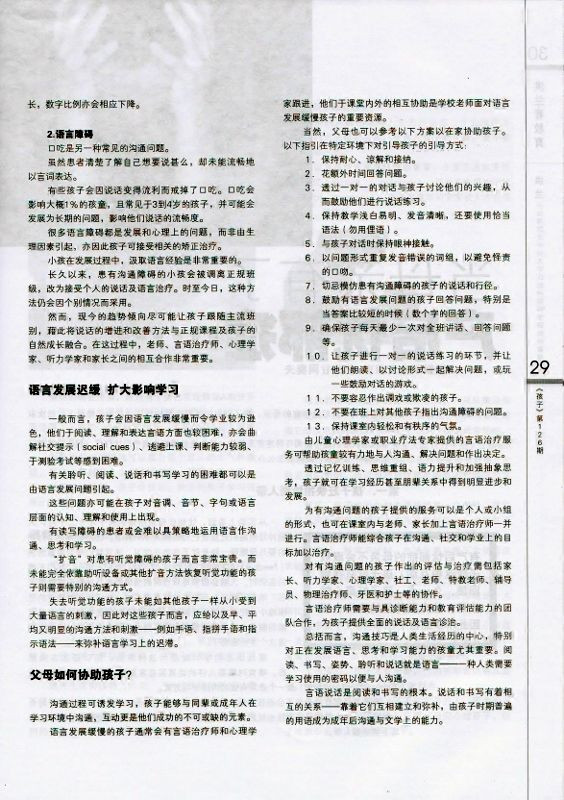 长，数字比例亦会相应下降。
2.语言障碍
口吃是另一种常见的沟通问题。
虽然患者清楚了解自己想要说甚么，却未能流畅地
以言词表达。
有些孩子会因说话变得流利而戒掉了口吃。口吃会
影响大概1%的孩童，且常见于3到4岁的孩子，并可能会
发展为长期的问题，影响他们说话的流畅度。
很多语言障碍都是发展和心理上的问题，而非由生
理因素引起，亦因此孩子可接受相关的矫正治疗。
小孩在发展过程中，汲取语言经验是非常重要的。
长久以来，患有沟通障碍的小孩会被调离正规班
级，改为接受个人的说话及语言治疗。时至今日，这种方
法仍会因个别情况而采用。
然而，现今的趋势倾向尽可能让孩子跟随主流班
别，藉此将说话的增进和改善方法与正规课程及孩子的
自然成长融合。在这过程中，老师、言语治疗师、心理学
家、听力学家和家长之间的相互合作非常重要。
语言发展迟缓 扩大影响学习
一般而言，孩子会因语言发展缓慢而令学业较为逊
色，他们于阅读、理解和表达言语方面也较困难，亦会曲
解社交提示（social cues）、逃避上课、判断能力较弱、
于测验考试等感到困难。
有关聆听、阅读、说话和书写学习的困难都可以是
由语言发展问题引起。
这些问题亦可能在孩子对音调、音节、字句或语言
层面的认知、理解和使用上出现。
有读写障碍的患者或会难以具策略地运用语言作沟
通、思考和学习。
“扩音”对患有听觉障碍的孩子而言非常宝贵。而
未能完全依靠助听设备或其他扩音方法恢复听觉功能的孩
子则需要特别的沟通方式。
失去听觉功能的孩子未能如其他孩子一样从小受到
大量语言的刺激，因此对这些孩子而言，应给以及早、平
均又明显的沟通方法和刺激——例如手语、指拼手语和指
示语法——来弥补语言学习上的迟滞。
父母如何协助孩子?
沟通过程可诱发学习，孩子能够与同辈或成年人在
学习环境中沟通，互动更是他们成功的不可或缺的元素。
语言发展缓慢的孩子通常会有言语治疗师和心理学
家跟进，他们于课堂内外的相互协助是学校老师面对语言
发展缓慢孩子的重要资源。
当然，父母也可以参考以下方案以在家协助孩子。
以下指引在特定环境下对引导孩子的引导方式：
1．保持耐心、谅解和接纳。
2．花额外时间回答问题。
3．透过一对一的对话与孩子讨论他们的兴趣，从
而鼓励他们进行说话练习。
4．保持教学浅白易明、发音清晰，还要使用恰当
语法（勿用俚语）。
5．与孩子对话时保持眼神接触。
6．以问题形式重复发音错误的词组，以避免怪责
的口吻。
7．切忌模仿患有沟通障碍的孩子的说话和行径。
8．鼓励有语言发展问题的孩子回答问题，特别是
当答案比较短的时候（数个字的回答）。
9．确保孩子每天最少一次对全班讲话、回答问题
等。
10．让孩子进行一对一的说话练习的环节，并让
他们朗读、以讨论形式一起解决问题，或玩
一些鼓励对话的游戏。
11．不要容忍作出调戏或欺凌的孩子。
12．不要在班上对其他孩子指出沟通障碍的问题。
13．保持课室内轻松和有秩序的气氛。
由儿童心理学家或职业疗法专家提供的言语治疗服
务可帮助孩童较有力地与人沟通、解决问题和作出决定。
透过记忆训练、思维重组、语力提升和加强抽象思
考，孩子就可在学习经历甚至朋辈关系中得到明显进步和
发展。
为有沟通问题的孩子提供的服务可以是个人或小组
的形式，也可在课室内与老师、家长加上言语治疗师一并
进行。言语治疗师能综合孩子在沟通、社交和学业上的目
标加以治疗。
对有沟通问题的孩子作出的评估与治疗需包括家
长、听力学家、心理学家、社工、老师、特教老师、辅导
员、物理治疗师、牙医和护士等的协作。
言语治疗师需要与具诊断能力和教育评估能力的团
队合作，为孩子提供全面的说话及语言诊治。
总括而言，沟通技巧是人类生活经历的中心，特别
对正在发展语言、思考和学习能力的孩童尤其重要。阅
读、书写、姿势、聆听和说话就是语言———一种人类需要
学习使用的密码以便与人沟通。
言语说话是阅读和书写的根本。说话和书写有着相
互的关系——靠着它们互相建立和弥补，由孩子时期普遍
的用语成为成年后沟通与文学上的能力。
29
《孩子》第126期